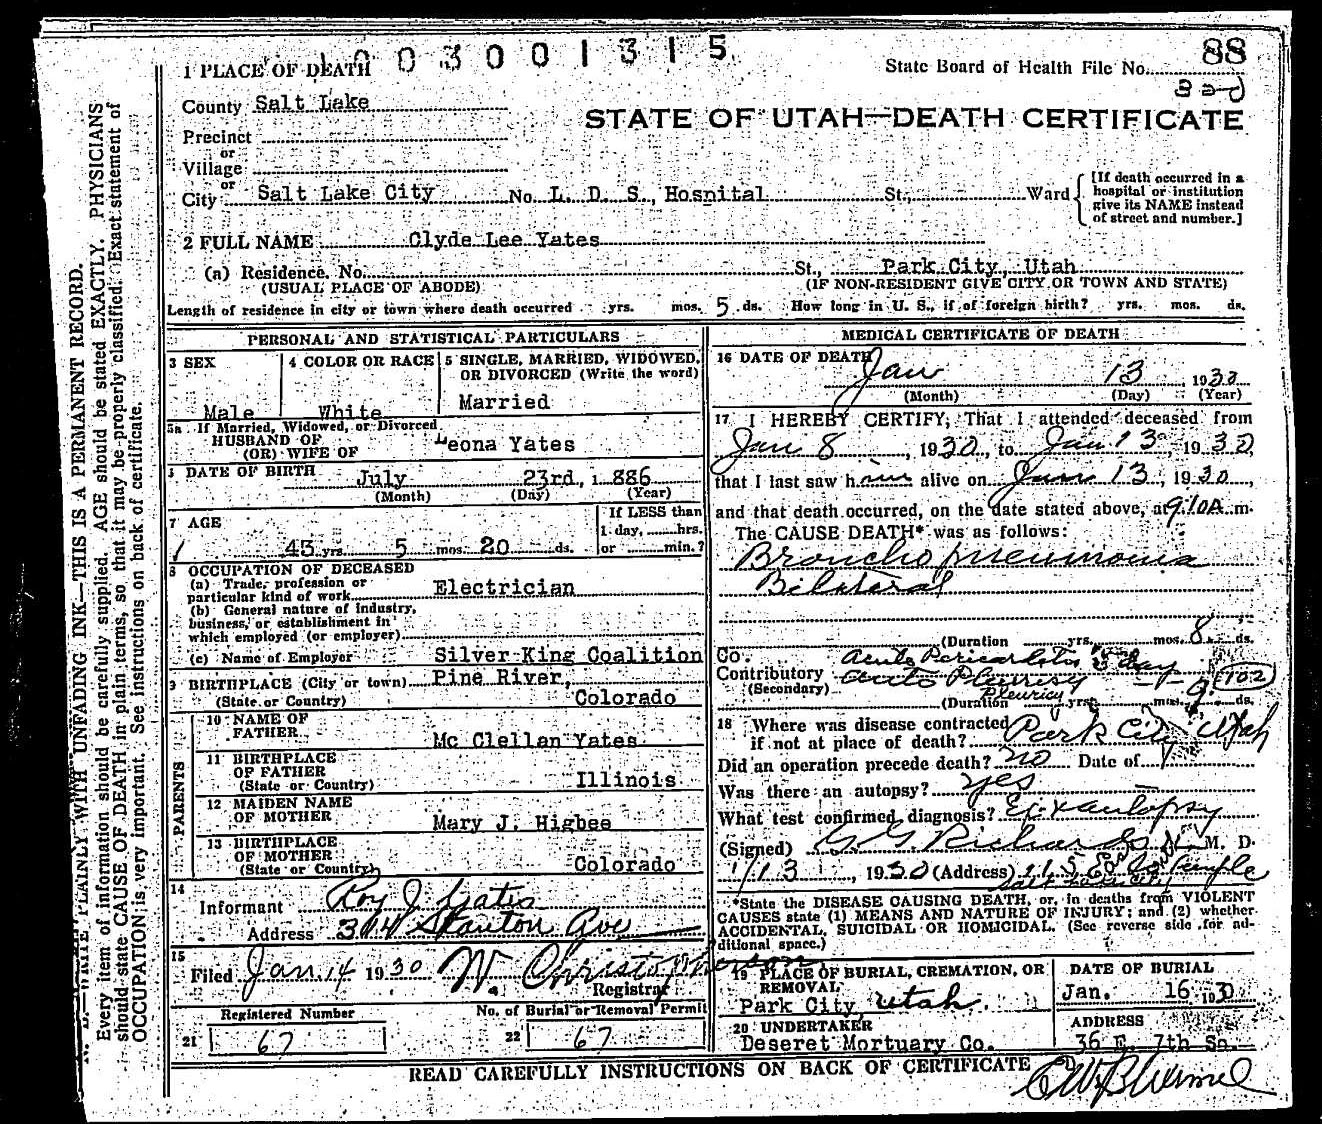 003001315
88
1 PLACE OF DEATH
State Board of Health File No.
County Salt Lake
STATE OF UTAH—DEATH CERTIFICATE
Precinct
or
Village
or
City Salt Lake City No. L. D. S. Hospital St., Ward
[If death occurred in a
hospital or institution
give its NAME instead
of street and number.]
2 FULL NAME Clyde Lee Yates
(a) Residence. No. St., Park City, Utah
(USUAL PLACE OF ABODE) (IF NON-RESIDENT GIVE CITY OR TOWN AND STATE)
Length of residence in city or town where death occurred yrs. mos. 5 ds. How long in U. S., if of foreign birth? yrs. mos. ds.
PERSONAL AND STATISTICAL PARTICULARS
3 SEX
Male
4 COLOR OR RACE
White
5 SINGLE, MARRIED, WIDOWED,
OR DIVORCED (Write the word)
Married
5a If Married, Widowed, or Divorced
HUSBAND OF
(OR) WIFE OF
Leona Yates
DATE OF BIRTH July 23rd, 1886
(Month) (Day) (Year)
7 AGE
43 yrs. 5 mos. 20 ds.
If LESS than
1 day, hrs.
or min.?
8 OCCUPATION OF DECEASED
(a) Trade, profession or
particular kind of work Electrician
(b) General nature of industry,
business, or establishment in
which employed (or employer)
(c) Name of Employer Silver King Coalition
9 BIRTHPLACE (City or town) Pine River,
(State or Country) Colorado
PARENTS
10 NAME OF
FATHER
Mc Clellan Yates
11 BIRTHPLACE
OF FATHER
(State or Country) Illinois
12 MAIDEN NAME
OF MOTHER
Mary J. Higbee
13 BIRTHPLACE
OF MOTHER
(State or Country) Colorado
14
Informant Roy J Yates
Address 304 Stanton Ave
15
Filed Jan 14 1930 W. Christopherson
Registrar
Registered Number
21 67
No. of Burial or Removal Permit
22 67
MEDICAL CERTIFICATE OF DEATH
16 DATE OF DEATH
Jan 13, 1930
(Month) (Day) (Year)
17 I HEREBY CERTIFY, That I attended deceased from
Jan 8, 1930, to Jan 13, 1930,
that I last saw him alive on Jan 13, 1930,
and that death occurred, on the date stated above, at 9:10A m.
The CAUSE DEATH* was as follows:
Broncho pneumonia
Bilateral
(Duration yrs. mos. 8 ds.
Co. Acute Pericarditis 3 day
Contributory Acute Pleurisy 102
(Secondary) Pleurisy
(Duration yrs. mos. 9 ds.
18 Where was disease contracted
if not at place of death? Park City Utah
Did an operation precede death? no Date of
Was there an autopsy? yes
What test confirmed diagnosis? Ex x autopsy
(Signed) G G Richards M. D.
1/13, 1930 (Address) 115 East South Temple
Salt Lake City
*State the DISEASE CAUSING DEATH, or, in deaths from VIOLENT
CAUSES state (1) MEANS AND NATURE OF INJURY; and (2) whether
ACCIDENTAL, SUICIDAL OR HOMICIDAL. (See reverse side for ad-
ditional space.)
19 PLACE OF BURIAL, CREMATION, OR
REMOVAL
Park City, Utah.
DATE OF BURIAL
Jan. 16, 1930
20 UNDERTAKER
Deseret Mortuary Co.
ADDRESS
36 E. 7th So.
READ CAREFULLY INSTRUCTIONS ON BACK OF CERTIFICATE
PLAINLY WITH UNFADING INK—THIS IS A PERMANENT RECORD.
Every item of information should be carefully supplied. AGE should be stated EXACTLY. PHYSICIANS
should state CAUSE OF DEATH in plain terms, so that it may be properly classified. Exact statement of
OCCUPATION is very important. See instructions on back of certificate.